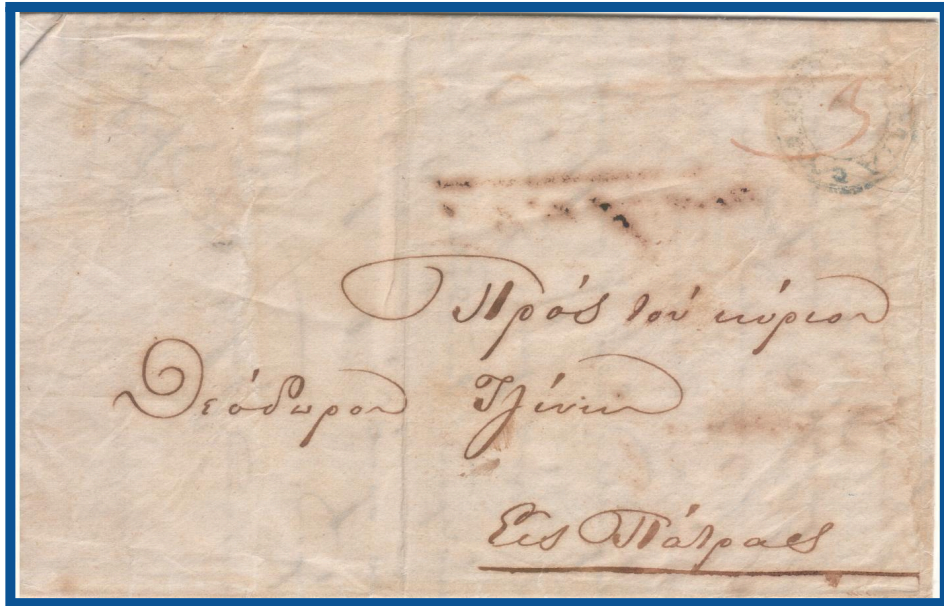 Πρὸς τὸν κύριον
Θεόδωρον
Εἰς Πάτρας